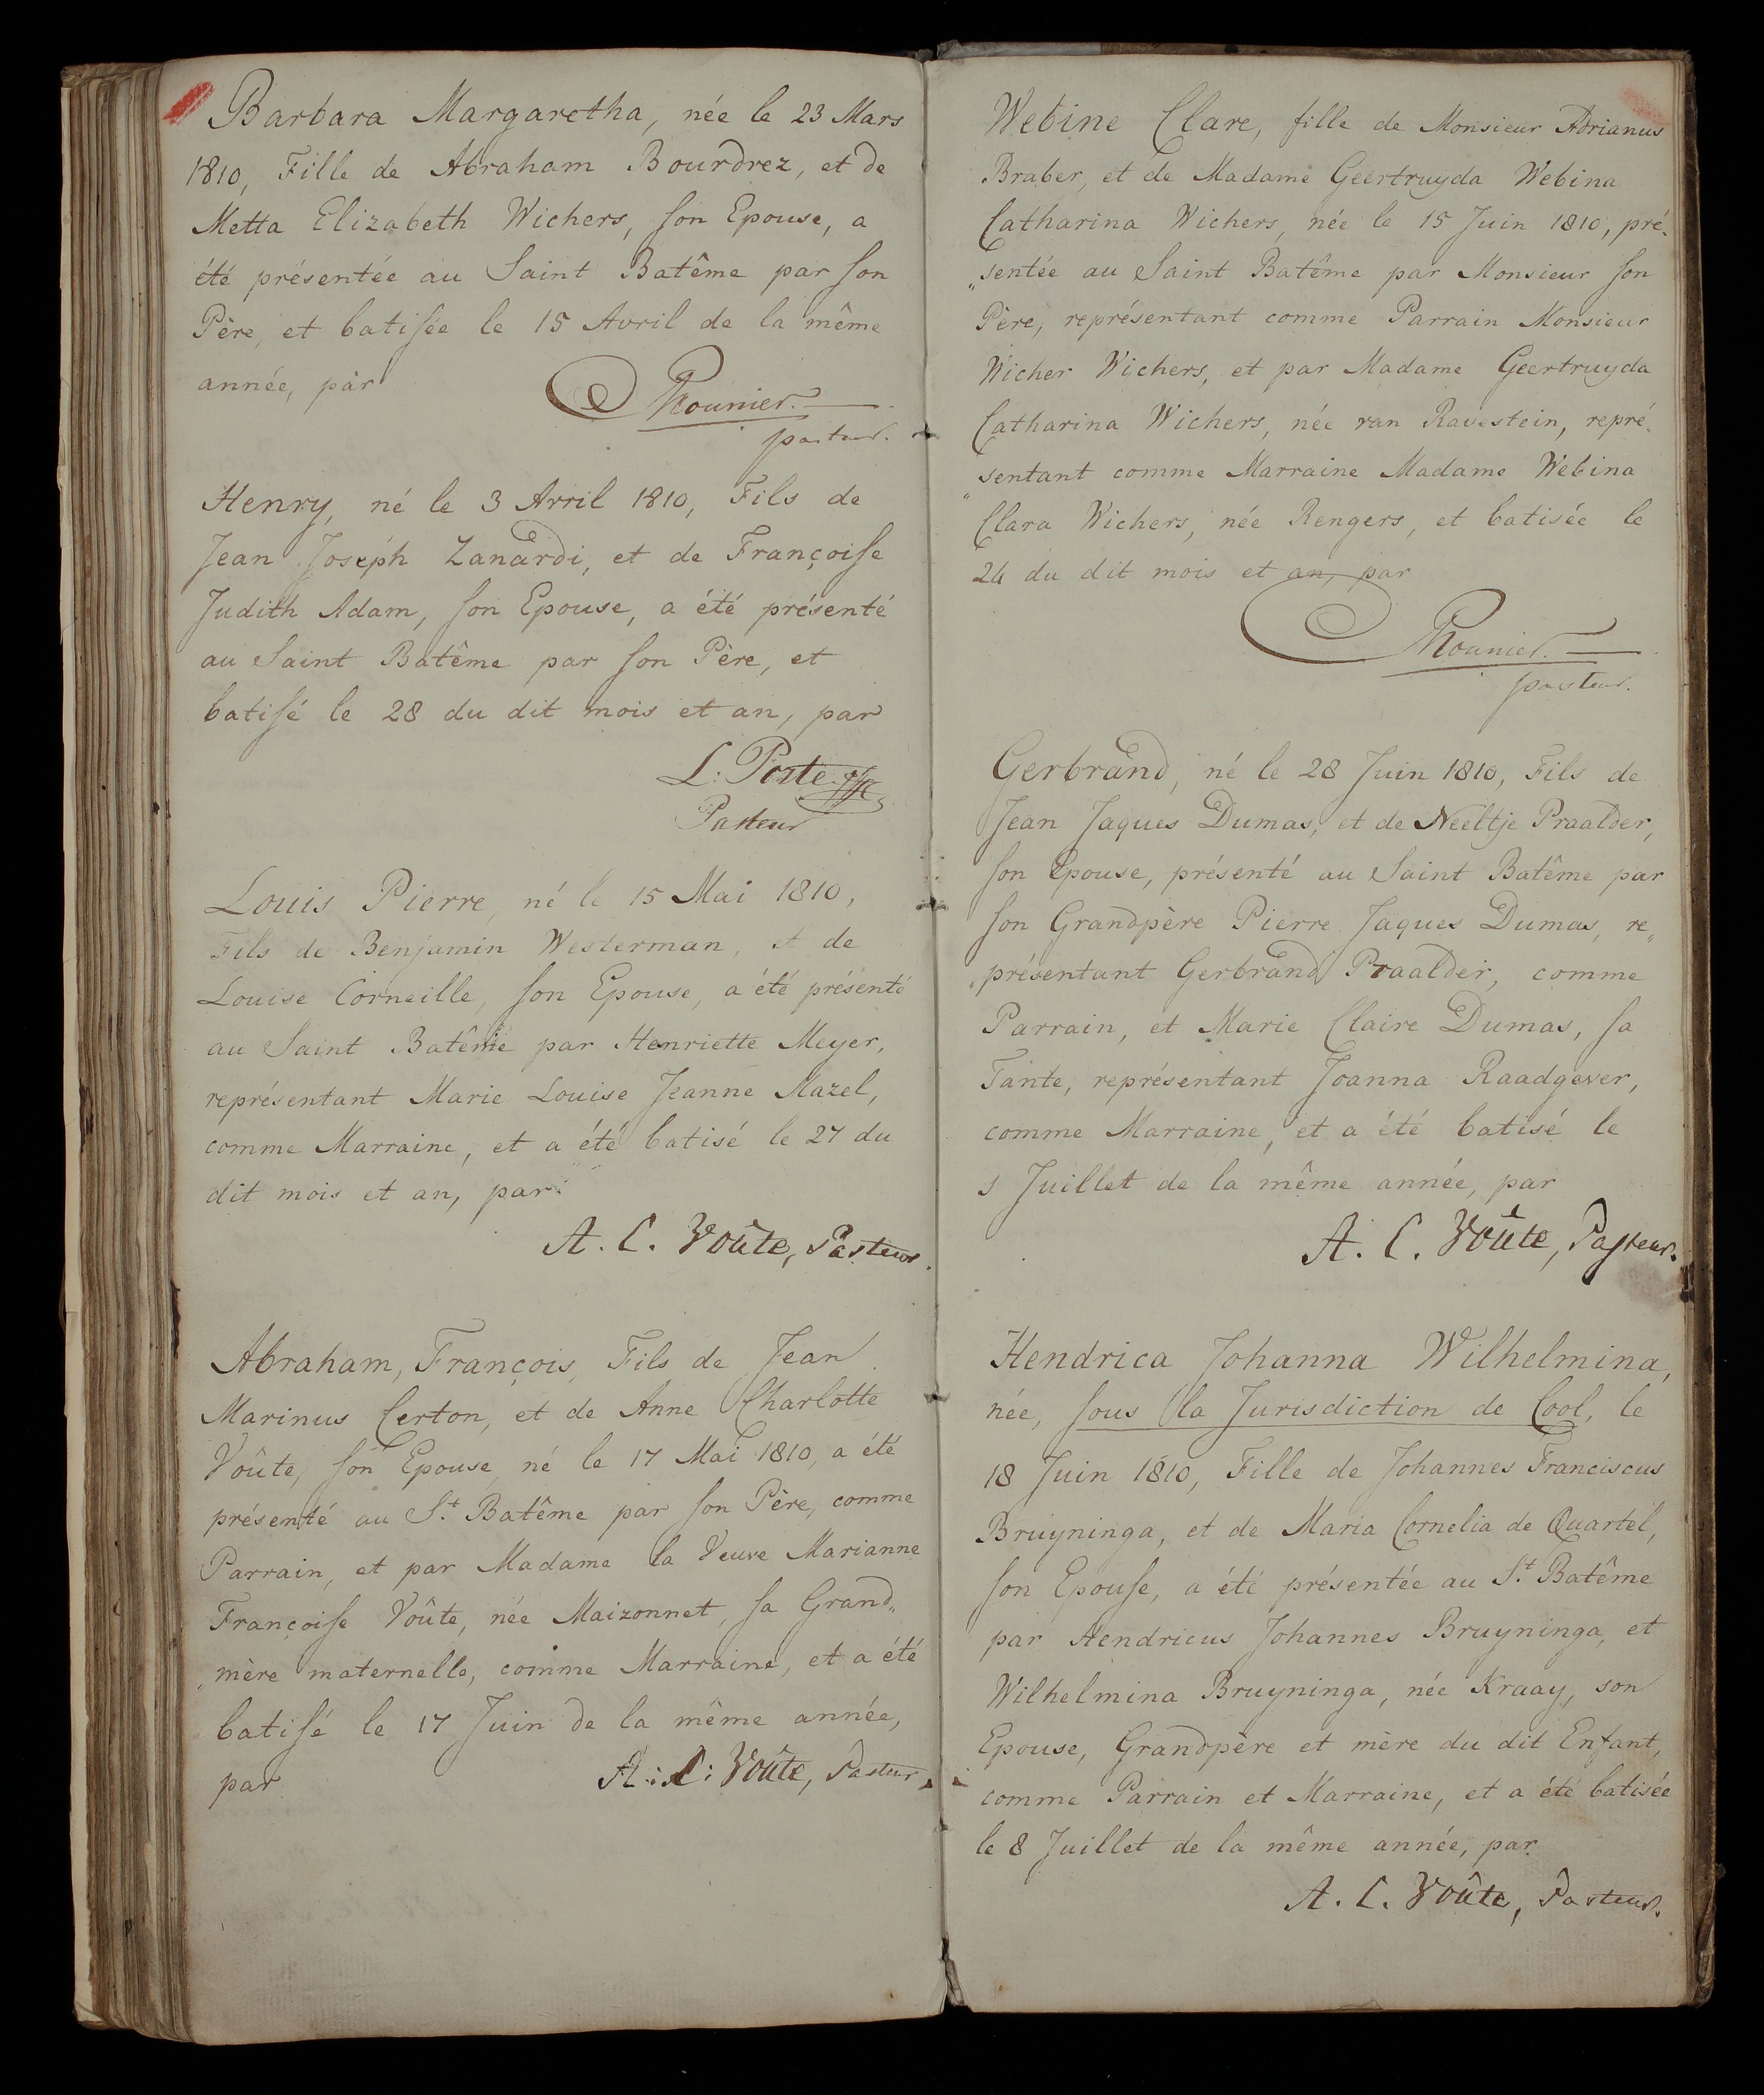 Barbara Margaretha, née le 23 Mars
1810, Fille de Abraham Bourdrez, et de
Metta Elizabeth Wichers, son Epouse, a
été présentée au Saint Batême par son
Père, et batisée le 15 Avril de la même
année, par
Rounier.
pasteur.
Henry, né le 3 Avril 1810, Fils de
Jean Joseph Zanardi, et de Françoise
Judith Adam, son Epouse, a été présenté
au Saint Batême par son Père, et
batisé le 28 du dit mois et an, par
L. Porte
Pasteur
Louis Pierre, né le 15 Mai 1810,
Fils de Benjamin Westerman, et de
Louise Corneille, son Epouse, a été présenté
au Saint Batême par Henriette Meyer,
représentant Marie Louise Jeanne Mazel,
comme Marraine, et a été batisé le 27 du
dit mois et an, par:
A. C. Voûte, Pasteur.
Abraham, François, Fils de Jean
Marinus Certon, et de Anne Charlotte
Voûte, son Epouse, né le 17 Mai 1810, a été
présenté au St. Batême par son Père, comme
Parrain, et par Madame la Veuve Marianne
Françoise Voûte, née Maizonnet, sa Grand„
„mère maternelle, comme Marraine, et a été
batisé le 17 Juin de la même année,
par
A: C: Voûte, Pasteur.
Webine Clare, fille de Monsieur Adrianus
Braber, et de Madame Geertruyda Webina
Catharina Wichers, née le 15 Juin 1810, pré„
„sentée au Saint Batême par Monsieur son
Père, représentant comme Parrain Monsieur
Wicher Wichers, et par Madame Geertruyda
Catharina Wichers, née van Ravestein, repré„
„sentant comme Marraine Madame Webina
Clara Wichers, née Rengers, et batisée le
24 du dit mois et an, par
Rounier.
pasteur.
Gerbrand, né le 28 Juin 1810, Fils de
Jean Jaques Dumas, et de Neeltje Praalder,
son Epouse, présenté au Saint Batême par
son Grandpère Pierre Jaques Dumas, re„
„présentant Gerbrand Praalder, comme
Parrain, et Marie Claire Dumas, sa
Tante, représentant Joanna Raadgever,
comme Marraine, et a été batisé le
Juillet de la même année, par
A. C. Voûte, Pasteur.
Hendrica Johanna Wilhelmina,
née, sous la Jurisdiction de Cool, le
18 Juin 1810, Fille de Johannes Franciscus
Bruyninga, et de Maria Cornelia de Quartel,
son Epouse, a été présentée au St. Batême
par Hendricus Johannes Bruyninga, et
Wilhelmina Bruyninga, née Kraay, son
Epouse, Grandpère et mère du dit Enfant,
comme Parrain et Marraine, et a été batisée
le 8 Juillet de la même année, par
A. C. Voûte, Pasteur.